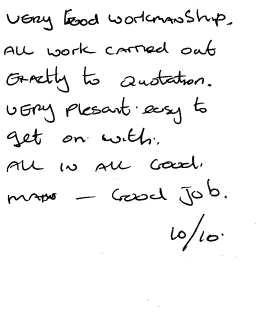 VERY Good WORKMANSHIP.
ALL WORK CARRIED OUT
EXACTLY to QUOTATION.
VERY PLESANT. easy to
get on with.
ALL IN ALL Good.
— Good Job.
10/10.